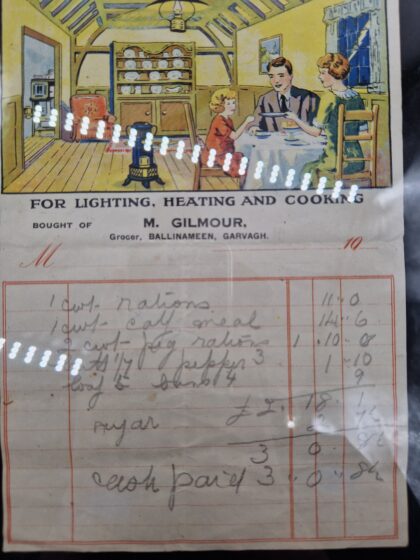 FOR LIGHTING, HEATING AND COOKING
BOUGHT OF M. GILMOUR,
Grocer, BALLINAMEEN, GARVAGH.
M 19
1 cwt rations 11 " 0
1 cwt calf meal 14 " 6
2 cwt pig rations 1 " 10 " 8
pepper 3 1 " 10
loaf 5 buns 4 9
£2 " 18 " 1
sugar
3 0
cash paid 3 " 0 "